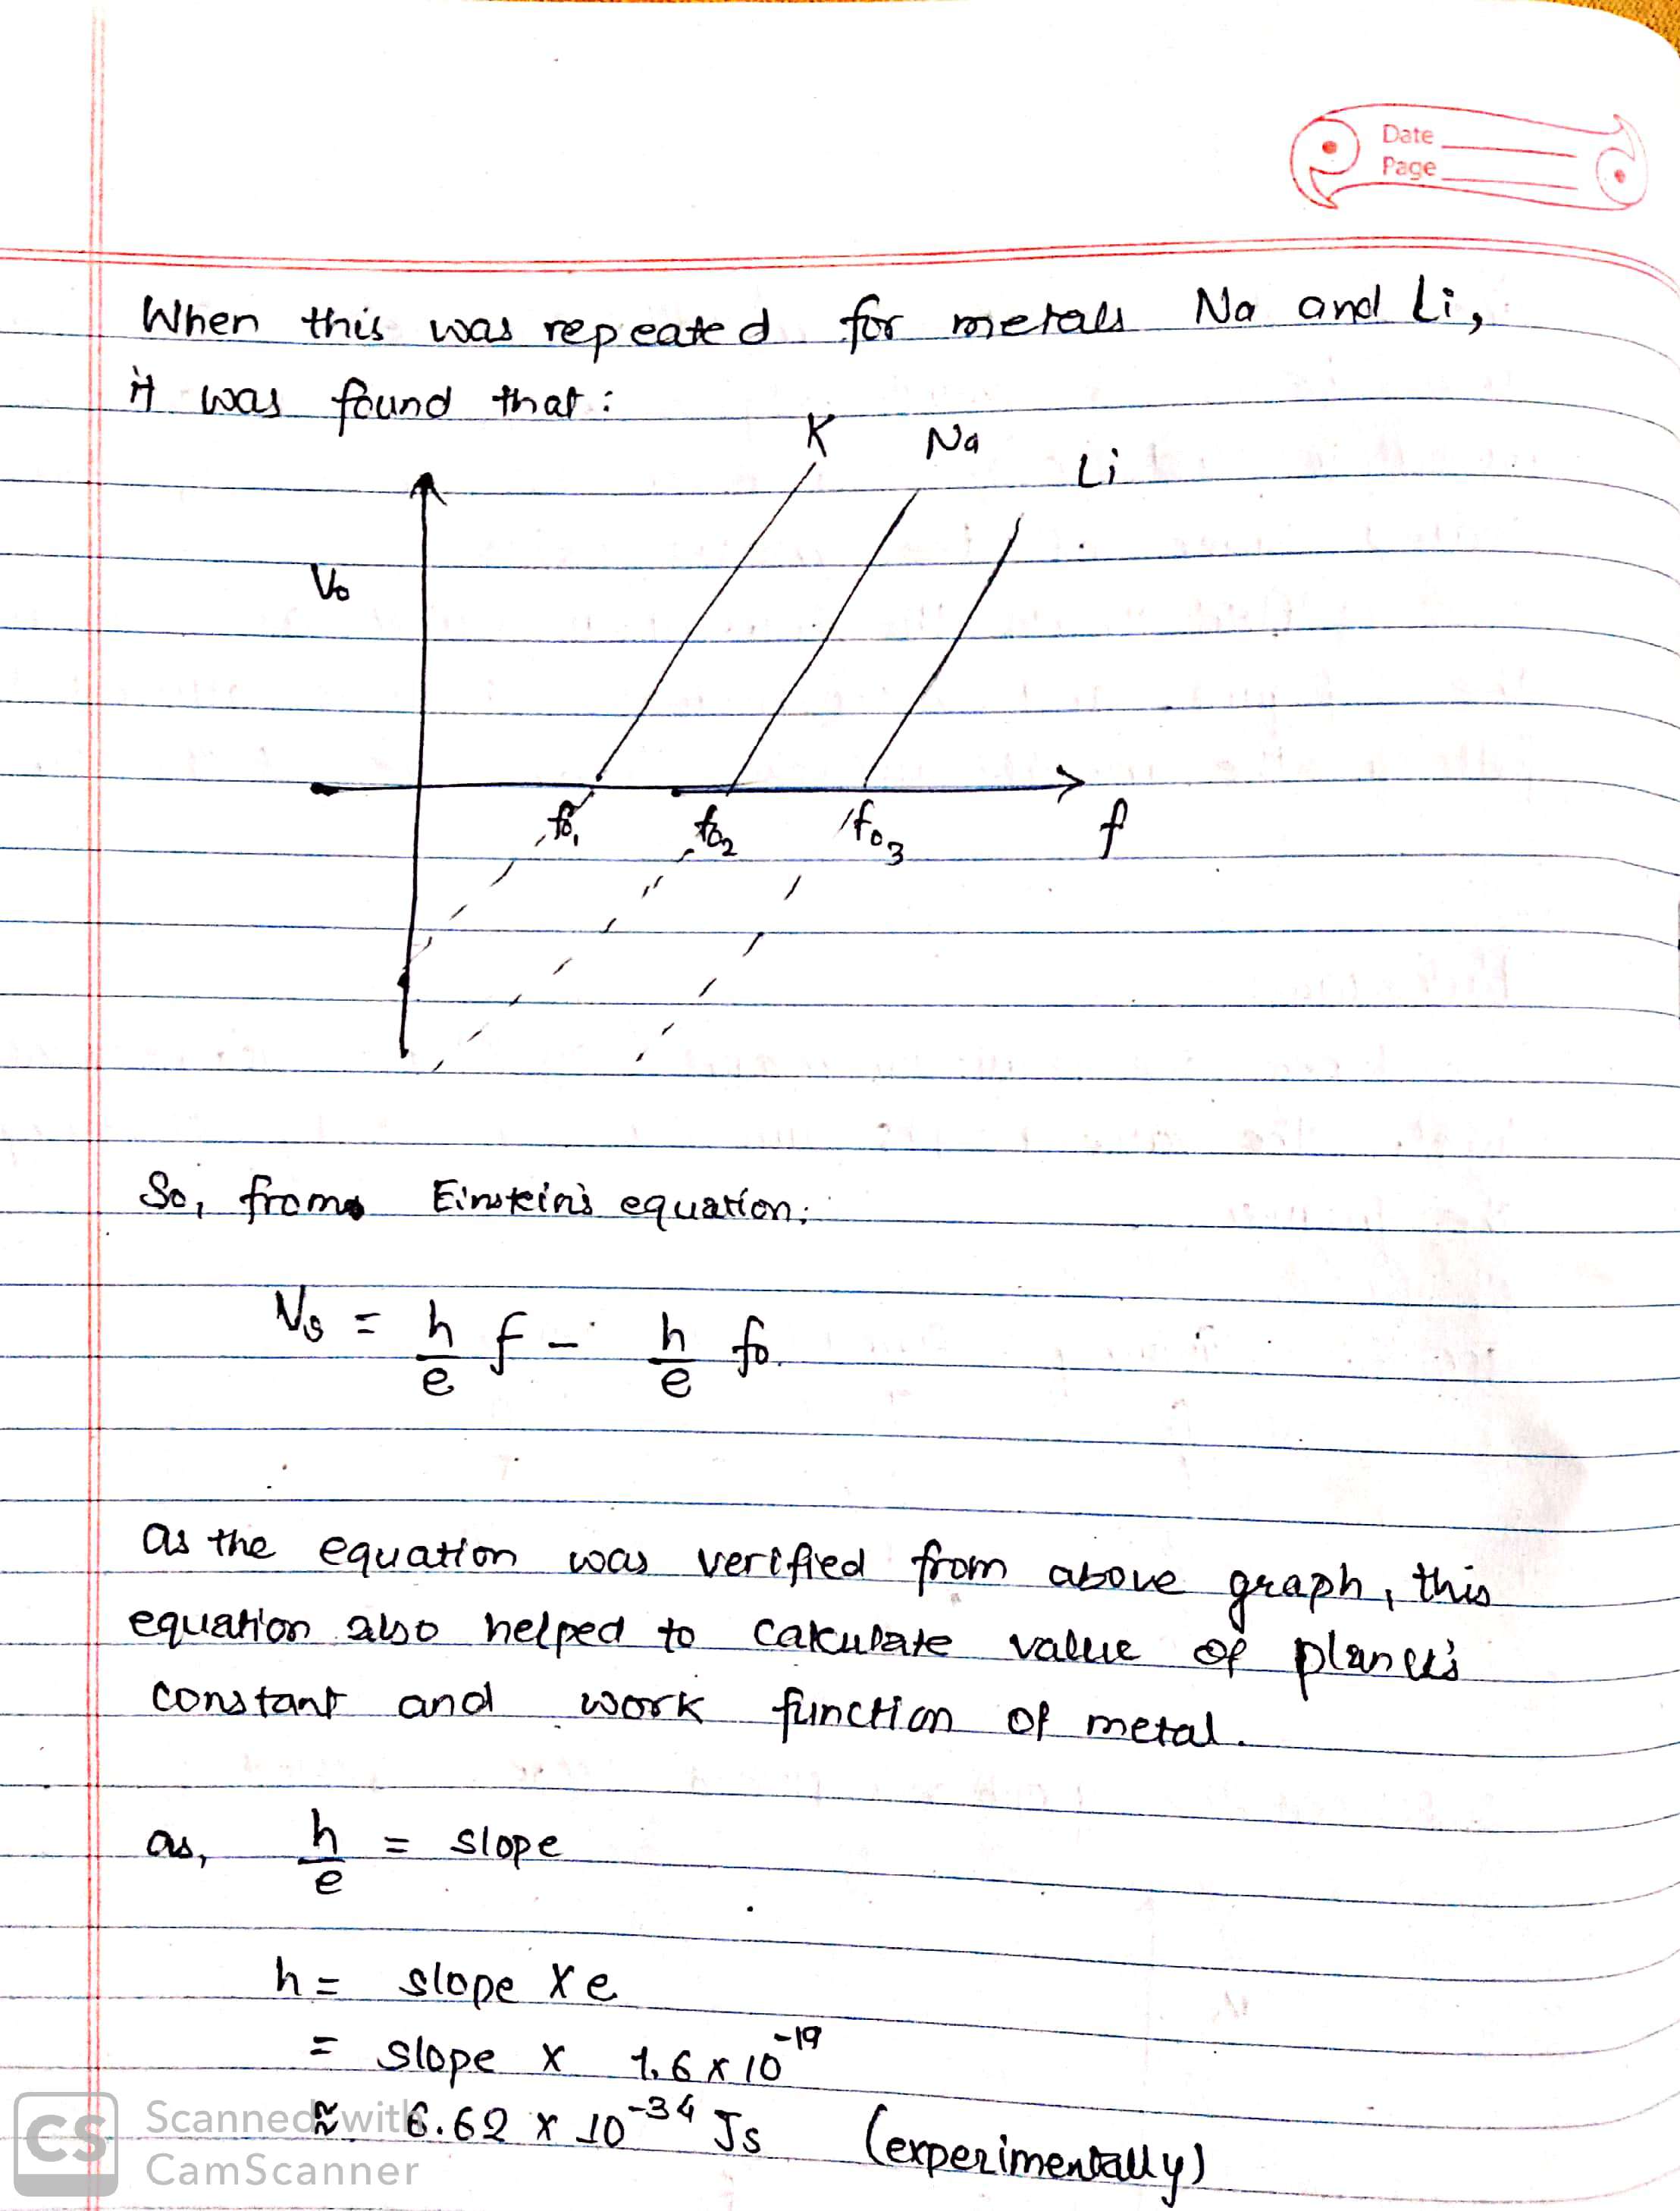 Date
Page
When this was repeated for metals Na and Li,
it was found that :
K Na Li
V₀
f₀₁ f₀₂ f₀₃ f
So, from Einstein's equation:
Vs = h/e f - h/e f₀.
as the equation was verified from above graph, this
equation also helped to calculate value of planck's
constant and work function of metal.
as, h/e = slope
h = slope x e
= slope x 1.6 x 10⁻¹⁹
≈ 6.62 x 10⁻³⁴ Js (experimentally)
CS Scanned with
CamScanner